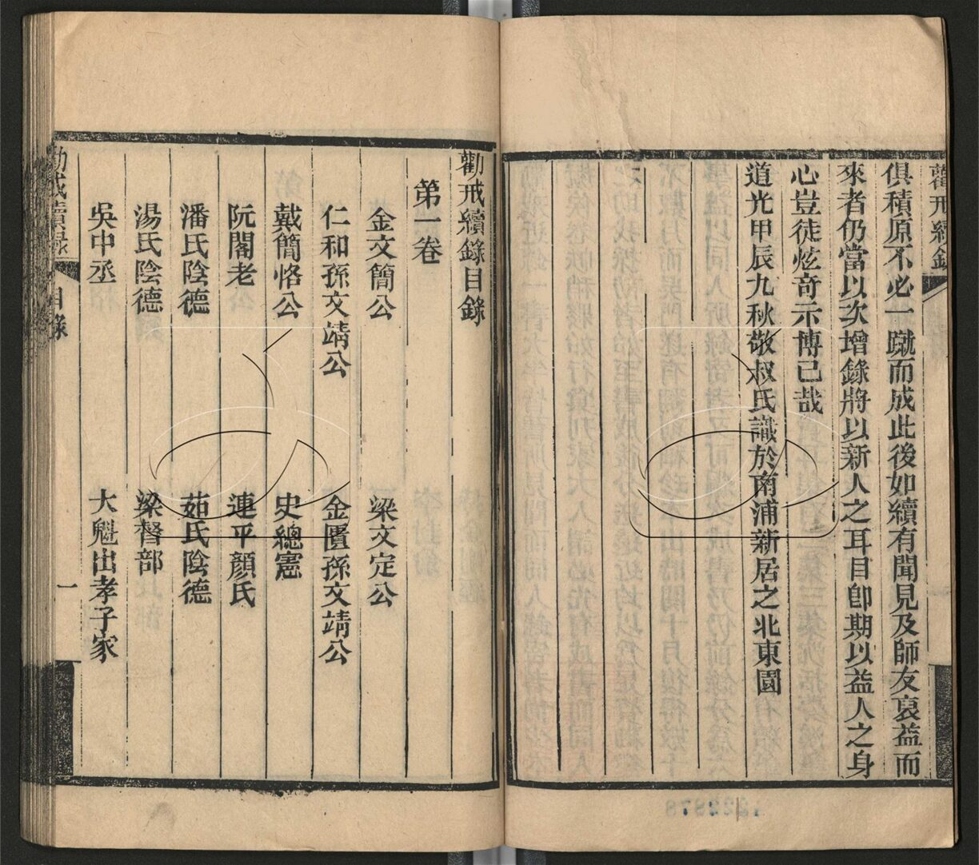 勸戒續錄
俱積原不必一蹴而成此後如續有聞見及師友裒益而
來者仍當以次增錄將以新人之耳目卽期以益人之身
心豈徒炫奇示博已哉
道光甲辰九秋敬叔氏識於南浦新居之北東園
勸戒續錄目錄
第一卷
金文簡公
梁文定公
仁和孫文靖公
金匱孫文靖公
戴簡恪公
史總憲
阮閣老
連平顏氏
潘氏陰德
茹氏陰德
湯氏陰德
梁督部
吳中丞
大魁出孝子家
勸戒續錄
目錄
一